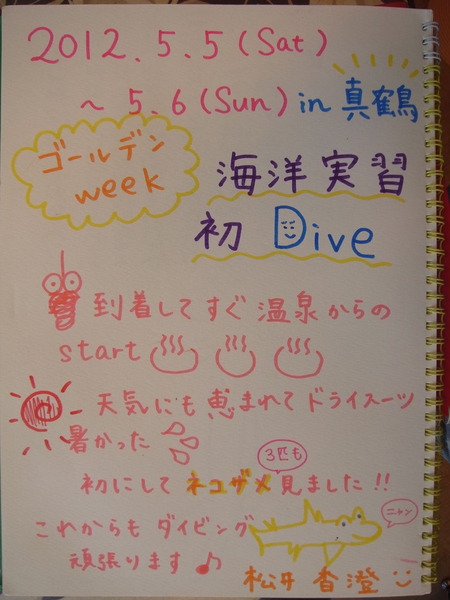 2012.5.5(Sat)
~5.6(Sun) in 真鶴
ゴールデン
week
海洋実習
初 Dive
到着してすぐ温泉からの
start
天気にも恵まれてドライスーツ
暑かった
3匹も
初にして ネコザメ 見ました!!
これからもダイビング
ニャン
頑張ります♪
松井 香澄